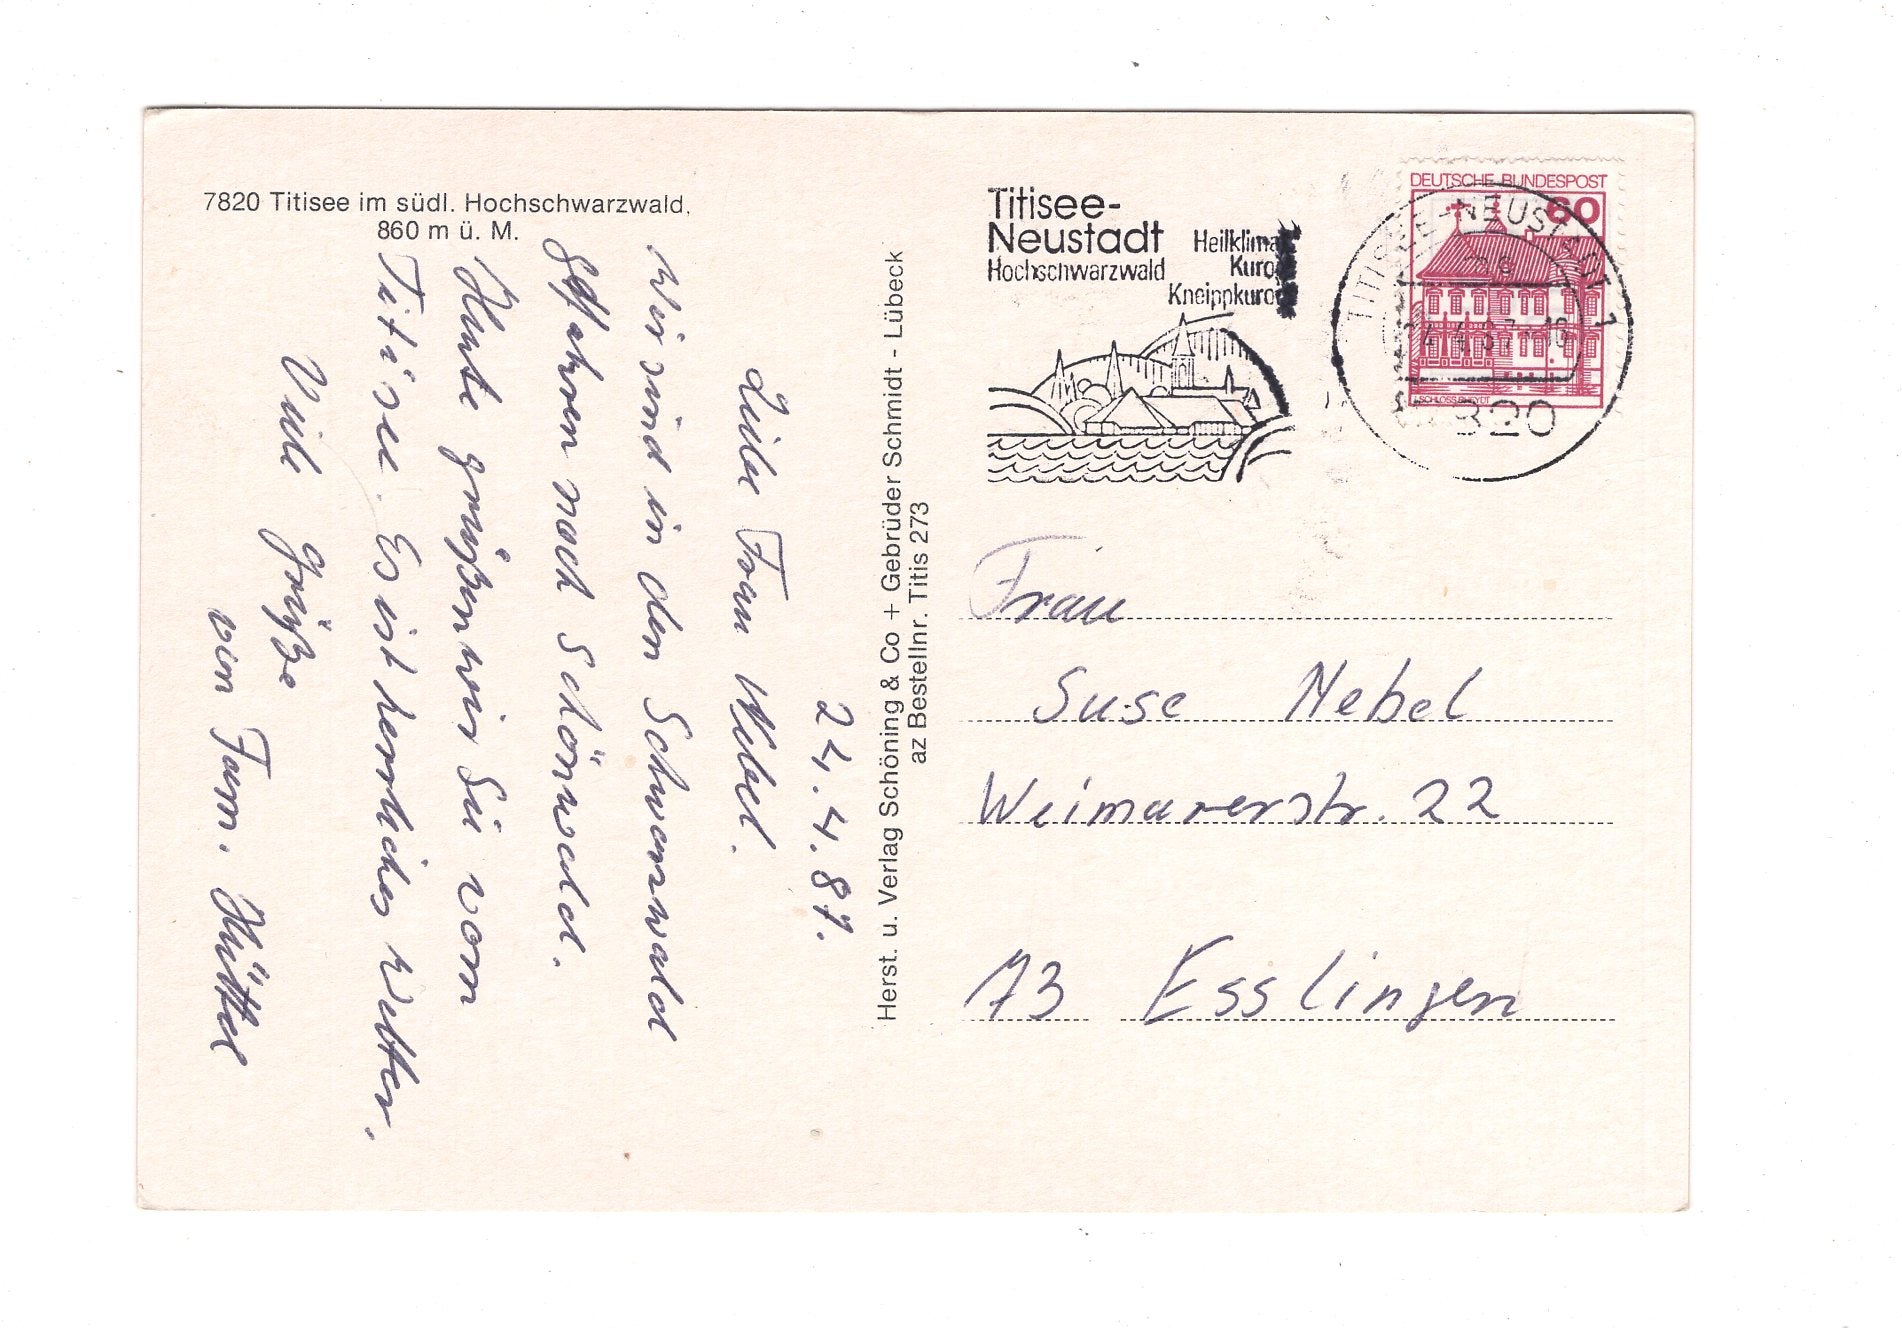 7820 Titisee im südl. Hochschwarzwald,
860 m ü. M.
24.4.87.
Liebe Frau Nebel.
Wir sind in den Schwarzwald
gefahren nach Schönwald.
Heute grüßen wir Sie vom
Titisee. Es ist herrliches Wetter.
Viele Grüße
von Fam. Hüttel
Herst. u. Verlag Schöning & Co + Gebrüder Schmidt - Lübeck
az Bestellnr. Titis 273
Titisee-
Neustadt
Hochschwarzwald
Heilklima
Kuror
Kneippkuror
DEUTSCHE BUNDESPOST
60
SCHLOSS RHEYDT
TITISEE-NEUSTADT 1
mg
24.4.87-18
7820
Frau
Suse Nebel
Weimarerstr. 22
73 Esslingen